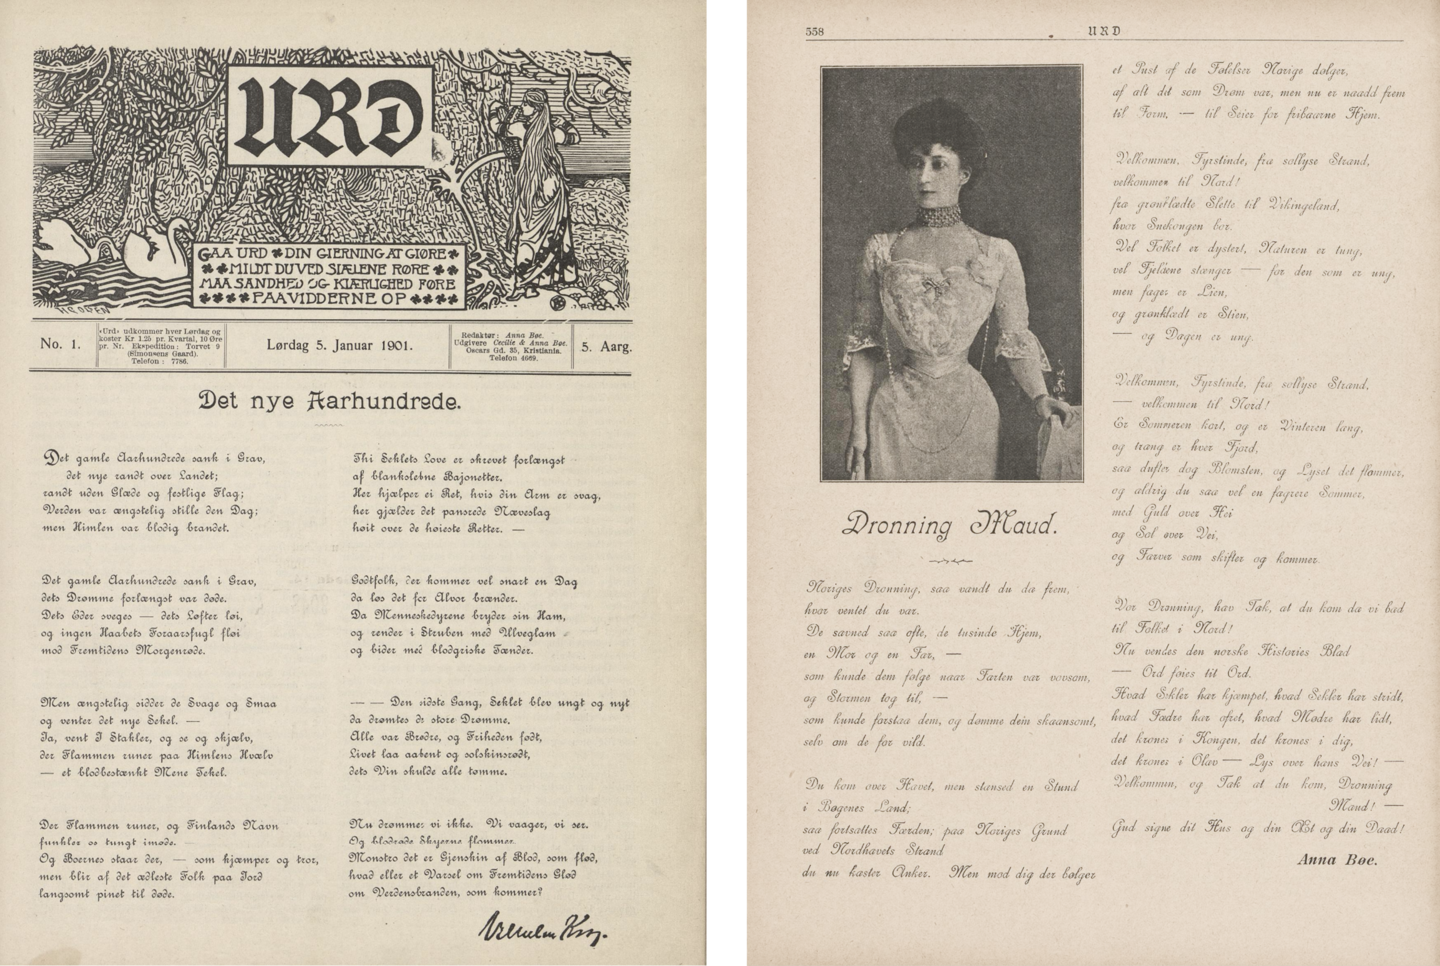 URD
GAA URD DIN GIERNING AT GIØRE
MILDT DU VED SIÆLENE RØRE
MAA SANDHED OG KIÆRLIGHED FØRE
PAA VIDDERNE OP
No. 1.
«Urd» udkommer hver Lørdag og
koster Kr 1.25 pr. Kvartal, 10 Øre
pr. Nr. Ekspedition: Torvet 9
(Simonsens Gaard).
Telefon: 7786.
Lørdag 5. Januar 1901.
Redaktør: Anna Bøe.
Udgivere Cecilie & Anna Bøe.
Oscars Gd. 35, Kristiania.
Telefon 4669.
5. Aarg.
Det nye Aarhundrede.
Det gamle Aarhundrede sank i Grav,
det nye randt over Landet;
randt uden Glæde og festlige Flag;
Verden var ængstelig stille den Dag;
men Himlen var blodig brandet.
Det gamle Aarhundrede sank i Grav,
dets Drømme forlængst var døde.
Dets Eder sveges — dets Løfter løi,
og ingen Haabets Foraarsfugl fløi
mod Fremtidens Morgenrøde.
Men ængstelig sidder de Svage og Smaa
og venter det nye Sekel. —
Ja, vent I Stakler, og se og skjælv,
der Flammen runer paa Himlens Hvælv
— et blodbestænkt Mene Tekel.
Der Flammen runer, og Finlands Navn
funkler os tungt imøde.
Og Boernes staar der, — som kjæmper og tror,
men blir af det ædleste Folk paa Jord
langsomt pinet til døde.
Thi Seklets Love er skrevet forlængst
af blankslebne Bajonetter.
Her hjælper ei Ret, hvis din Arm er svag,
her gjælder det pansrede Næveslag
høit over de høieste Retter. —
Godtfolk, der kommer vel snart en Dag
da løs det for Alvor brænder.
Da Menneskedyrene bryder sin Ham,
og render i Struben med Ulveglam
og bider med blodgriske Tænder.
— — Den sidste Gang, Seklet blev ungt og nyt
da drømtes de store Drømme.
Alle var Brødre, og Friheden født,
Livet laa aabent og solskinsrødt,
dets Vin skulde alle tømme.
Nu drømmer vi ikke. Vi vaager, vi ser.
Og blodrøde Skyerne flammer.
Monstro det er Gjenskin af Blod, som flød,
hvad eller et Varsel om Fremtidens Glød
om Verdensbranden, som kommer?
Vilhelm Krag.
558
URD
Dronning Maud.
Noriges Dronning, saa vandt du da frem,
hvor ventet du var.
De savned saa ofte, de tusinde Hjem,
en Mor og en Far, —
som kunde dem følge naar Farten var vovsom,
og Stormen tog til, —
som kunde forstaa dem, og dømme dem skaansomt,
selv om de for vild.
Du kom over Havet, men stansed en Stund
i Bøgenes Land;
saa fortsattes Færden; paa Noriges Grund
ved Nordhavets Strand
du nu kaster Anker. Men mod dig der bølger
et Pust af de Følelser Norige dølger,
af alt dit som Drøm var, men nu er naadd frem
til Form, — til Seier for fribaarne Hjem.
Velkommen, Fyrstinde, fra sollyse Strand,
velkommen til Nord!
fra grønklædte Slette til Vikingeland,
hvor Snekongen bor.
Vel Folket er dystert, Naturen er tung,
vel Fjeldene stænger — for den som er ung,
men fager er Lien,
og grønklædt er Stien,
— og Dagen er ung.
Velkommen, Fyrstinde, fra sollyse Strand,
— velkommen til Nord!
Er Sommeren kort, og er Vinteren lang,
og trang er hver Fjord,
saa dufter dog Blomsten, og Lyset det flammer,
og aldrig du saa vel en fagrere Sommer,
med Guld over Hei
og Sol over Vei,
og Farver som skifter og kommer.
Vor Dronning, hav Tak, at du kom da vi bad
til Folket i Nord!
Nu vendes den norske Histories Blad
— Ord føies til Ord.
Hvad Sekler har kjæmpet, hvad Sekler har stridt,
hvad Fædre har ofret, hvad Mødre har lidt,
det krones i Kongen, det krones i dig,
det krones i Olav — Lys over hans Vei! —
Velkommen, og Tak at du kom, Dronning
Maud! —
Gud signe dit Hus og din Æt og din Daad!
Anna Bøe.